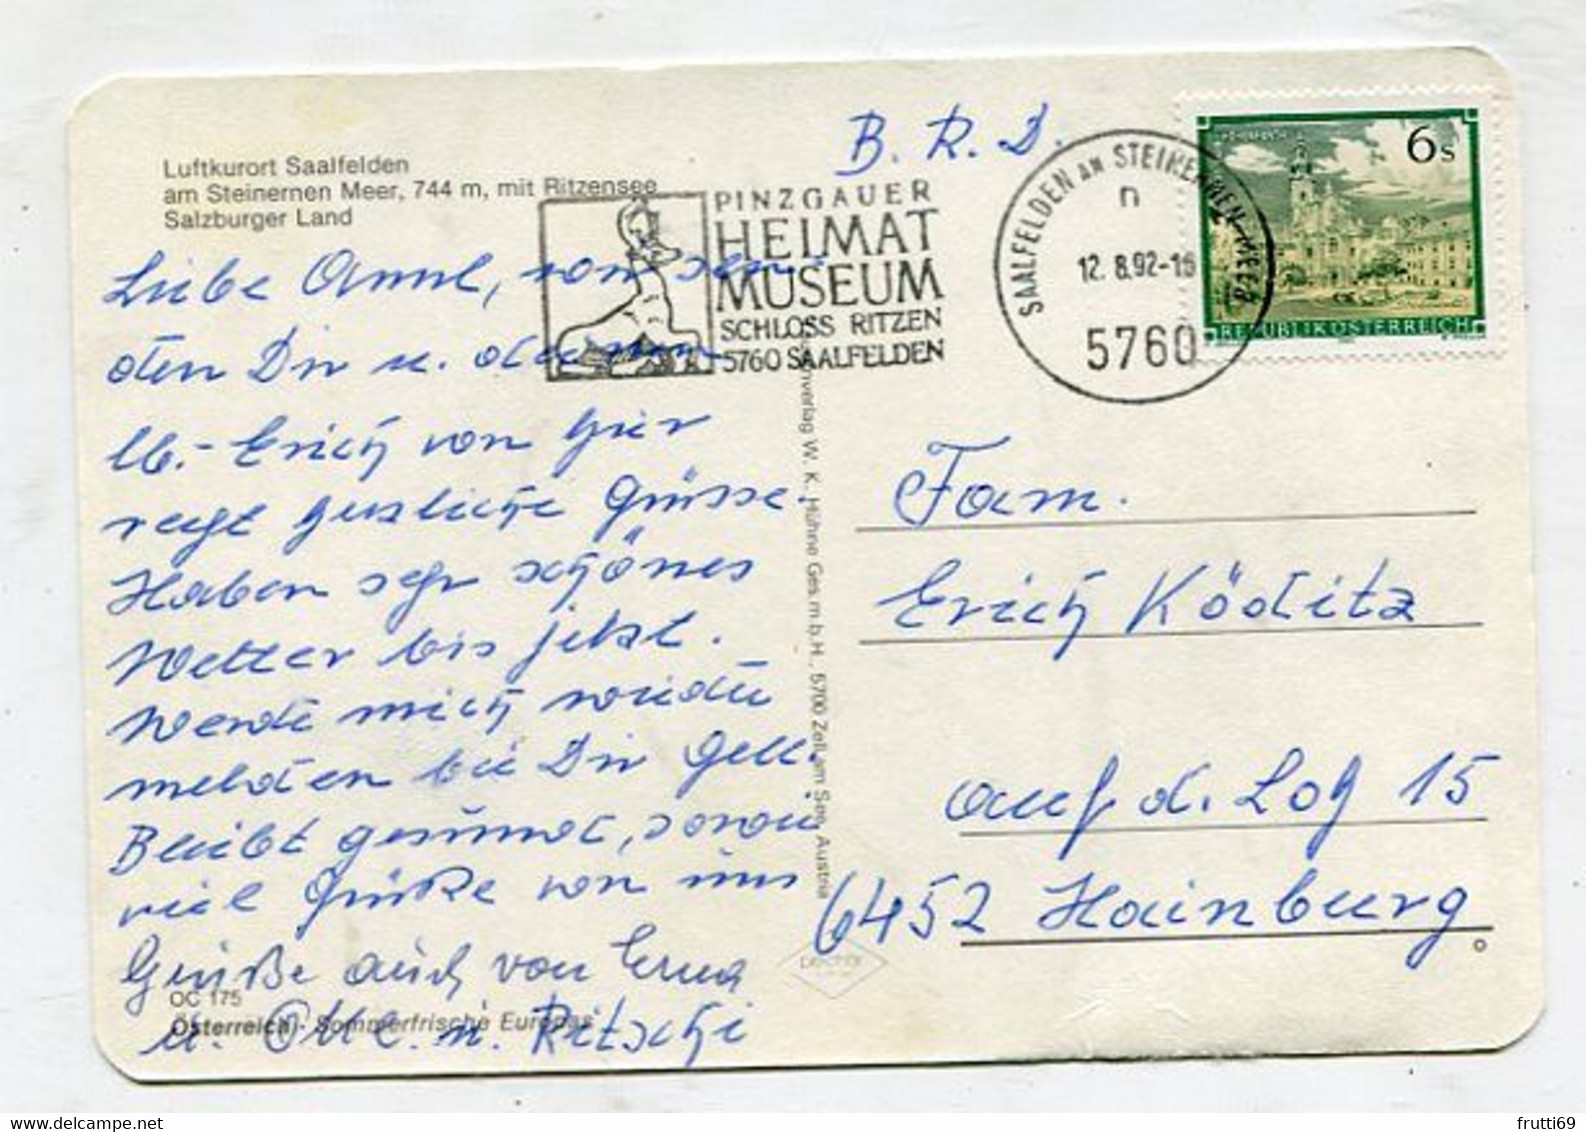 Luftkurort Saalfelden
am Steinernen Meer, 744 m, mit Ritzensee
Salzburger Land
B. R. D.
PINZGAUER
HEIMAT
MUSEUM
SCHLOSS RITZEN
5760 SAALFELDEN
SAALFELDEN AM STEINERNEN MEER
n
12. 8.92-18
5760
6 S
REPUBLIK ÖSTERREICH
Liebe Anne, von sen-
den Dir u.
Erich von hier
recht herzliche Grüsse.
Haben sehr schönes
Wetter bis jetzt.
Werde mich wieder
melden bei Dir Gell.
Bleibt gesund, sowie
viel Grüße von uns
Grüße auch von Erna
u. Ritschi
OC 175
Österreich - Sommerfrische Europas
W. K. Hühne Ges.m.b.H., 5700 Zell am See, Austria
Fam.
Erich Köditz
auf d. Loh 15
6452 Hainburg
delcampe.net
frutti69